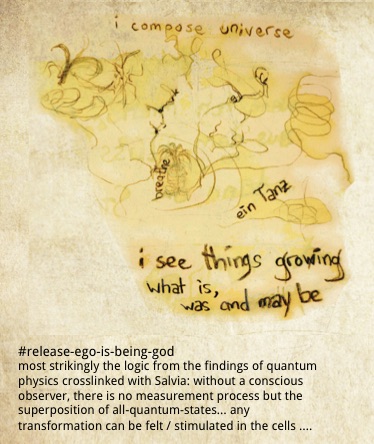 i compose universe
breathe
ein Tanz
i see things growing
what is,
was and may be
#release-ego-is-being-god
most strikingly the logic from the findings of quantum
physics crosslinked with Salvia: without a conscious
observer, there is no measurement process but the
superposition of all-quantum-states... any
transformation can be felt / stimulated in the cells ....